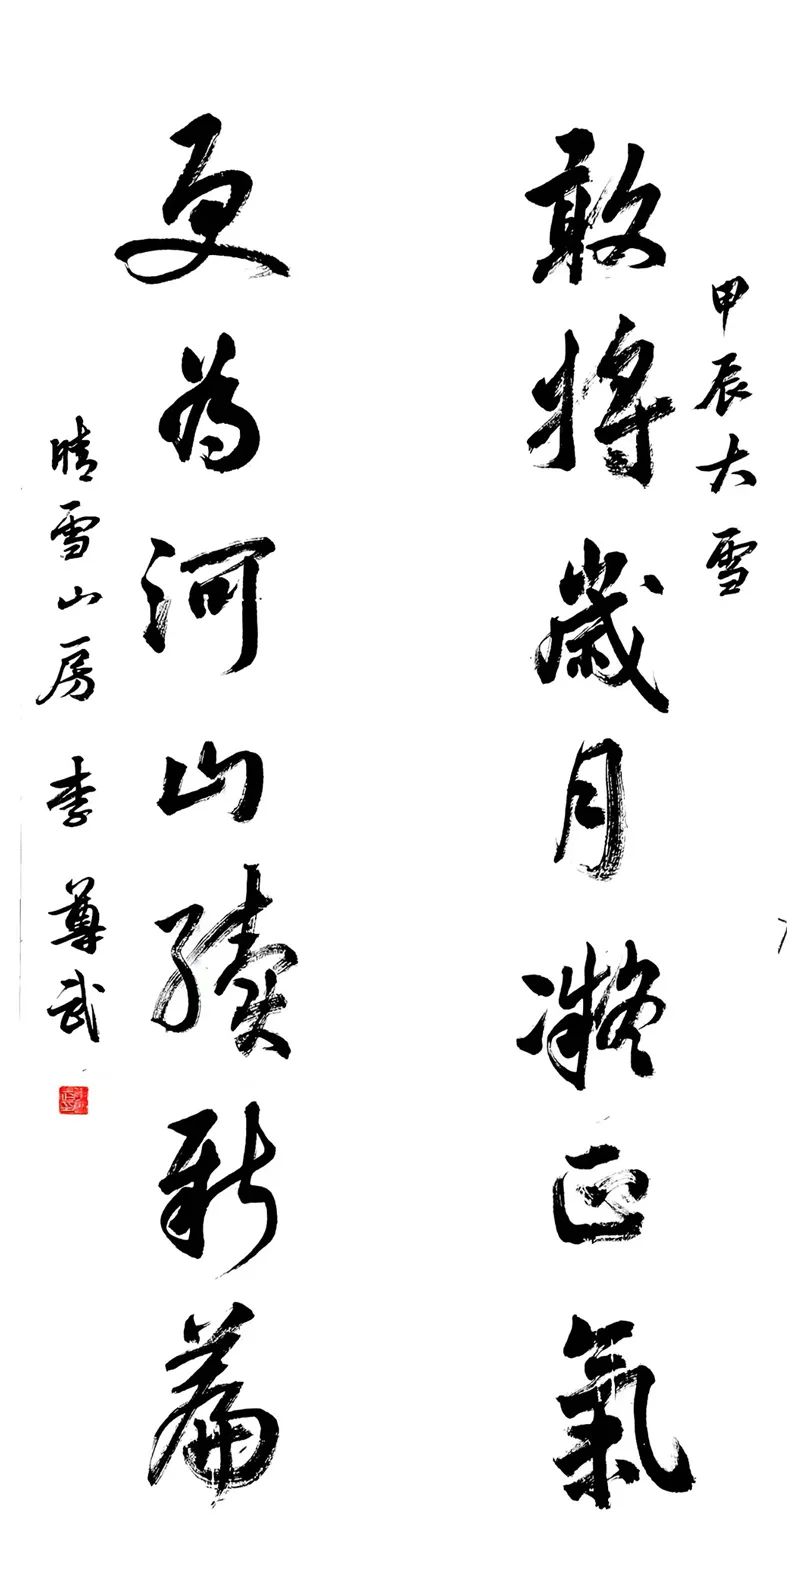 甲辰大雪
敢將歲月凝正氣
更為河山續新篇
晴雪山房 李尊武